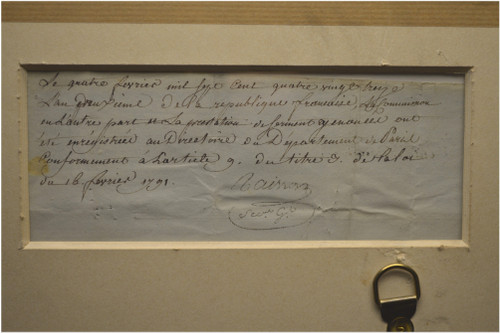 Le quatre fevrier mil sept cent quatre vingt treize
L'an deuxieme de la republique francaise, La Commission
en L'autre part et La prestation de serment y enoncée ont
été enrégistrées au Directoire du Département de Paris
Conformement à L'article 9. du titre 3. de la loi
du 16 fevrier 1791.